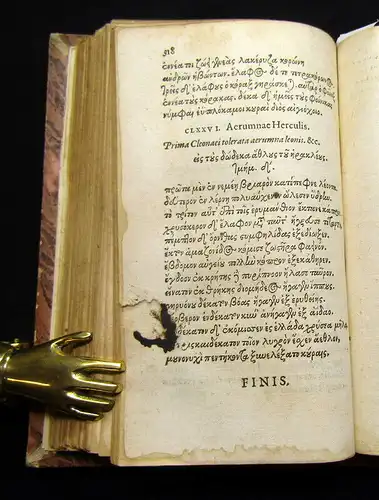 318
ἐννέα τοι ζώει γενεὰς λακέρυζα κορώνη
ἀνδρῶν ἡβώντων. ἔλαφος δέ τε τετρακόρωνος.
τρεῖς δ' ἐλάφους ὁ κόραξ γηράσκεται. αὐτὰρ ὁ φοῖνιξ
ἐννέα τοὺς κόρακας. δέκα δ' ἡμεῖς τοὺς φοίνικας
νύμφαι ἐυπλόκαμοι κοῦραι διὸς αἰγιόχοιο.
CLXXVI. Aerumnae Herculis.
Prima Cleonaei tolerata aerumna leonis. &c.
εἰς τοὺς δώδεκα ἄθλους τοῦ ἡρακλέους.
πρῶτα μὲν ἐν νεμέῃ βριαρὸν κατέπεφνε λέοντα.
δεύτερον ἐν λέρνῃ πολυαύχενον ὤλεσεν ὕδραν.
τὸ τρίτον αὖτ' ἐπὶ τοῖς ἐρυμάνθιον ἔκτανε κάπρον.
χρυσόκερων ἔλαφον μετὰ ταῦτ' ἤγρευσε τέταρτον.
πέμπτον δ' ὄρνιθας στυμφηλίδας ἐξεδίωξεν.
ἕκτον ἀμαζονίδος κόμισε ζωστῆρα φαεινόν.
ἕβδομον αὐγείου πολλὴν κόπρον ἐξεκάθηρεν.
ὄγδοον ἐκ κρήτηθε πυρίπνοον ἤλασε ταῦρον.
εἴνατον ἐκ θρῄκης διομήδεος ἤγαγεν ἵππους.
γηρυόνου δέκατον βόας ἤγαγεν ἐξ ἐρυθείης.
κέρβερον ἑνδέκατον κύν' ἀνήγαγεν ἐξ ἀίδαο.
δωδέκατον δ' ἐκόμισσεν ἐς ἑλλάδα χρύσεα μῆλα
τρισκαιδέκατον τοῖον λυγρὸν ἔσχεν ἄεθλον.
μουνονυχὶ πεντήκοντα ξυνελέξατο κούραις.
FINIS.